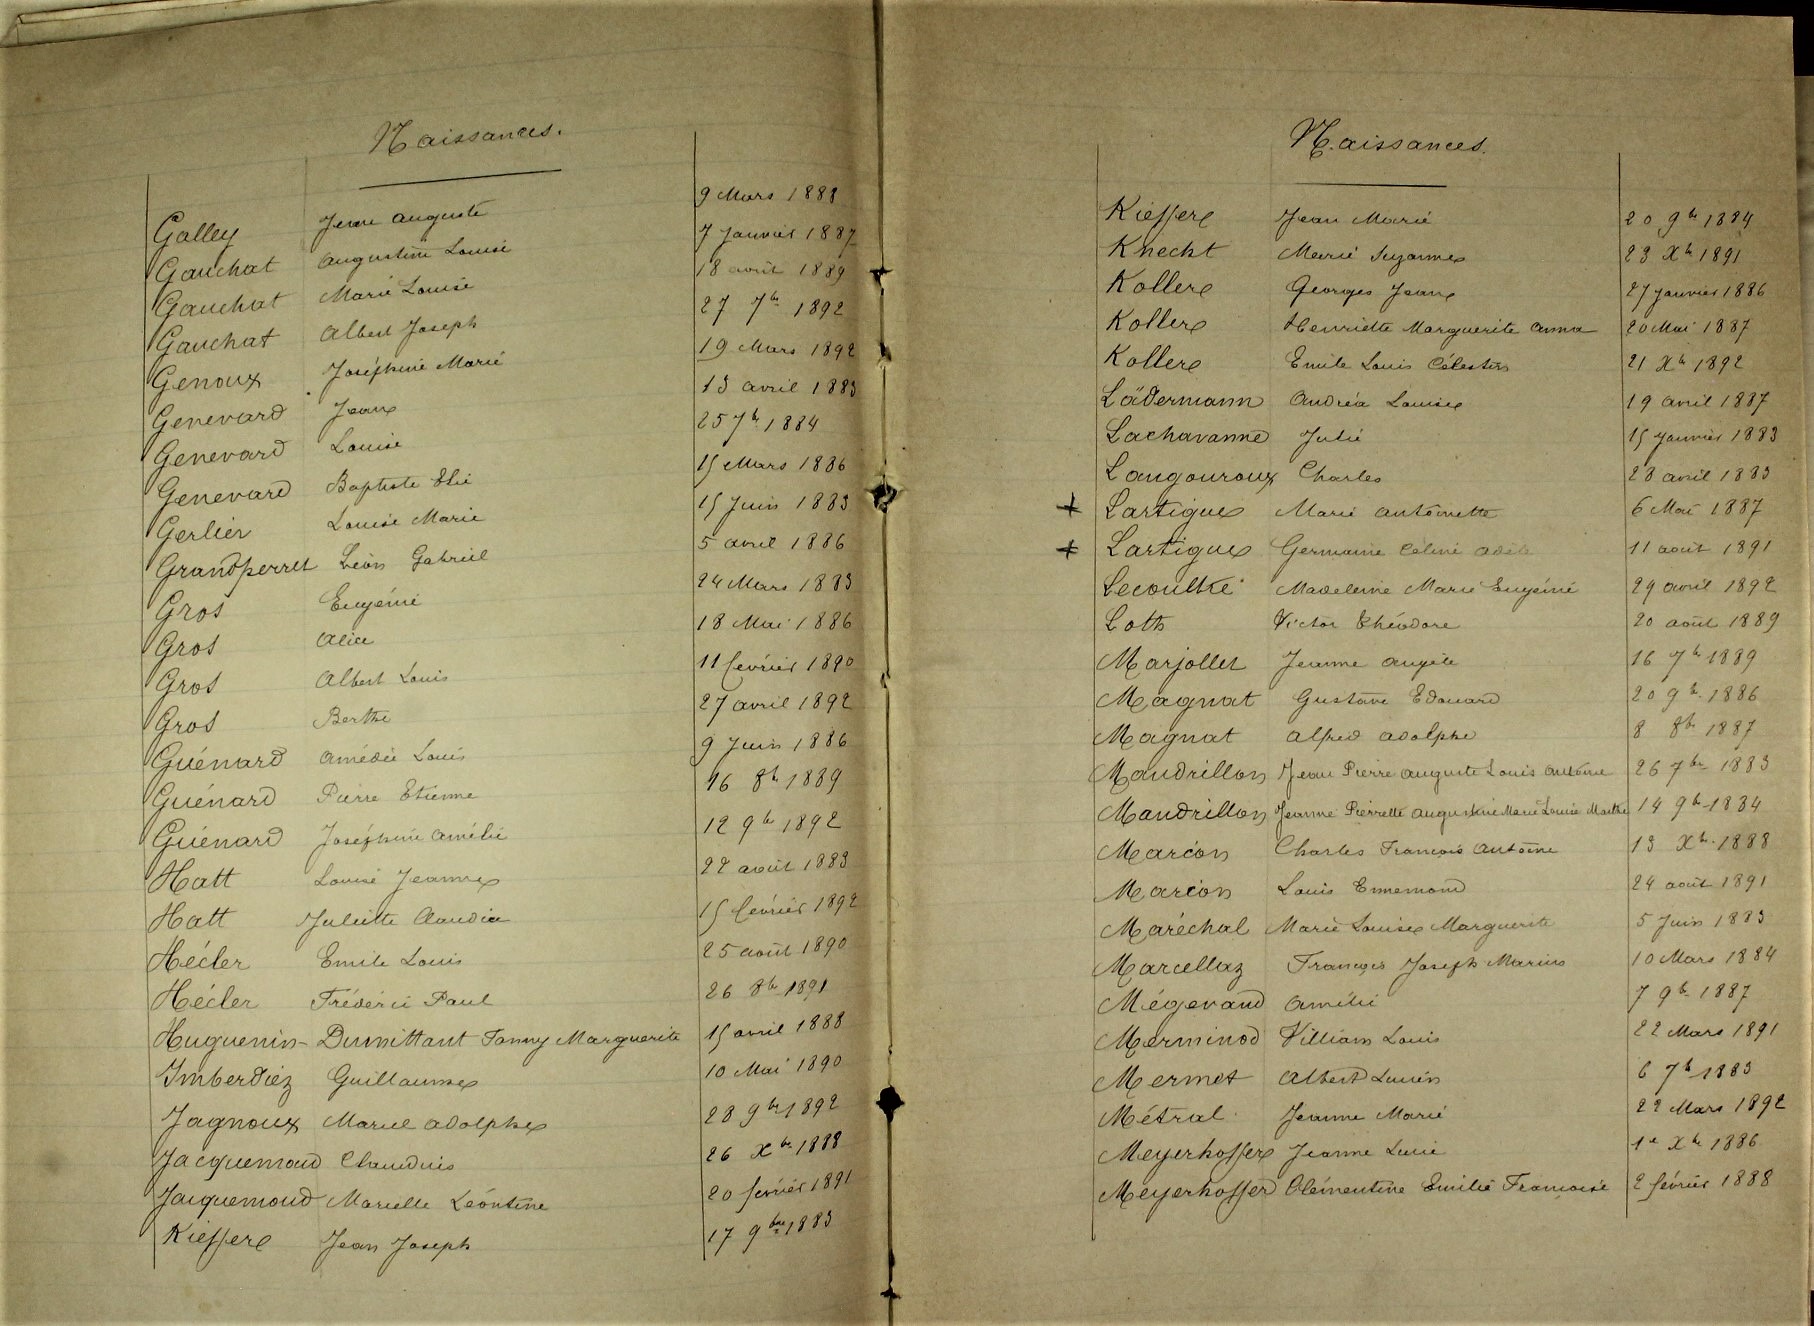 Naissances.
Galley Jean Auguste 9 Mars 1888
Gauchat Augustine Louise 7 Janvier 1887
Gauchat Marie Louise 18 août 1889
Gauchat Albert Joseph 27 7bre 1892
Genoux Joséphine Marie 19 Mars 1892
Genevard Jean 13 avril 1883
Genevard Louise 25 7bre 1884
Genevard Baptiste Elie 15 Mars 1886
Gerlier Louise Marie 15 Juin 1883
Grandperret Léon Gabriel 5 avril 1886
Gros Eugénie 24 Mars 1883
Gros Alice 18 Mai 1886
Gros Albert Louis 11 février 1890
Gros Berthe 27 avril 1892
Guénard Amédée Louis 9 Juin 1886
Guénard Pierre Etienne 16 8bre 1889
Guénard Joséphine Amélie 12 9bre 1892
Hatt Louise Jeanne 22 août 1883
Hatt Juliette Claudia 15 février 1892
Hécler Emile Louis 25 août 1890
Hécler Frédéric Paul 26 8bre 1891
Huguenin-Dumittant Fanny Marguerite 15 avril 1888
Imberdiez Guillaume 10 Mai 1890
Jagnoux Marcel Adolphe 28 9bre 1892
Jacquemoud Claudius 26 Xbre 1888
Jacquemoud Marcelle Léontine 20 février 1891
Kieffer Jean Joseph 17 9bre 1883
Naissances.
Kieffer Jean Marie 20 9bre 1884
Knecht Marie Suzanne 23 Xbre 1891
Koller Georges Jean 27 Janvier 1886
Koller Henriette Marguerite Anna 20 Mai 1887
Koller Emile Louis Célestin 21 Xbre 1892
Lädermann Andréa Louise 19 avril 1887
Lachavanne Julie 15 Janvier 1883
Langouroux Charles 28 avril 1883
+ Lartigue Marie Antoinette 6 Mai 1887
+ Lartigue Germaine Céline Adèle 11 août 1891
Lecoultre Madeleine Marie Eugénie 29 avril 1892
Loth Victor Théodore 20 août 1889
Marjollet Jeanne Angèle 16 7bre 1889
Magnat Gustave Edouard 20 9bre 1886
Magnat Alfred Adolphe 8 8bre 1887
Mandrillon Jean Pierre Auguste Louis Antoine 26 7bre 1883
Mandrillon Jeanne Pierrette Augustine Marie Louise Marthe 14 9bre 1884
Marcon Charles François Antoine 13 Xbre 1888
Marcon Louis Ennemond 24 août 1891
Maréchal Marie Louise Marguerite 5 Juin 1883
Marcellaz François Joseph Marius 10 Mars 1884
Mégevand Amélie 7 9bre 1887
Merminod Villiam Louis 22 Mars 1891
Mermet Albert Lucien 6 7bre 1883
Métral Jeanne Marie 22 Mars 1892
Meyerhoffer Jeanne Lucie 1er Xbre 1886
Meyerhoffer Clémentine Emilie Françoise 2 février 1888